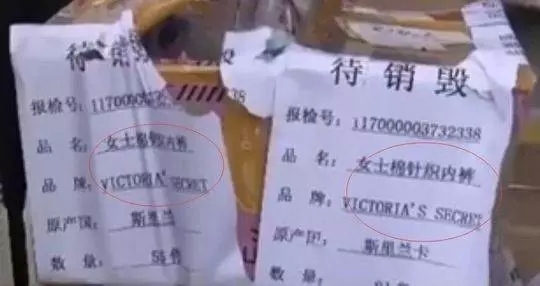 待销毁
品 名: 女士棉针织内裤
品 牌: VICTORIA'S SECRET
原产国: 斯里兰
数 量:
待销毁
报检号: 117000003732338
品 名: 女士棉针织内裤
品 牌: VICTORIA'S SECRET
原产国: 斯里兰卡
数 量: